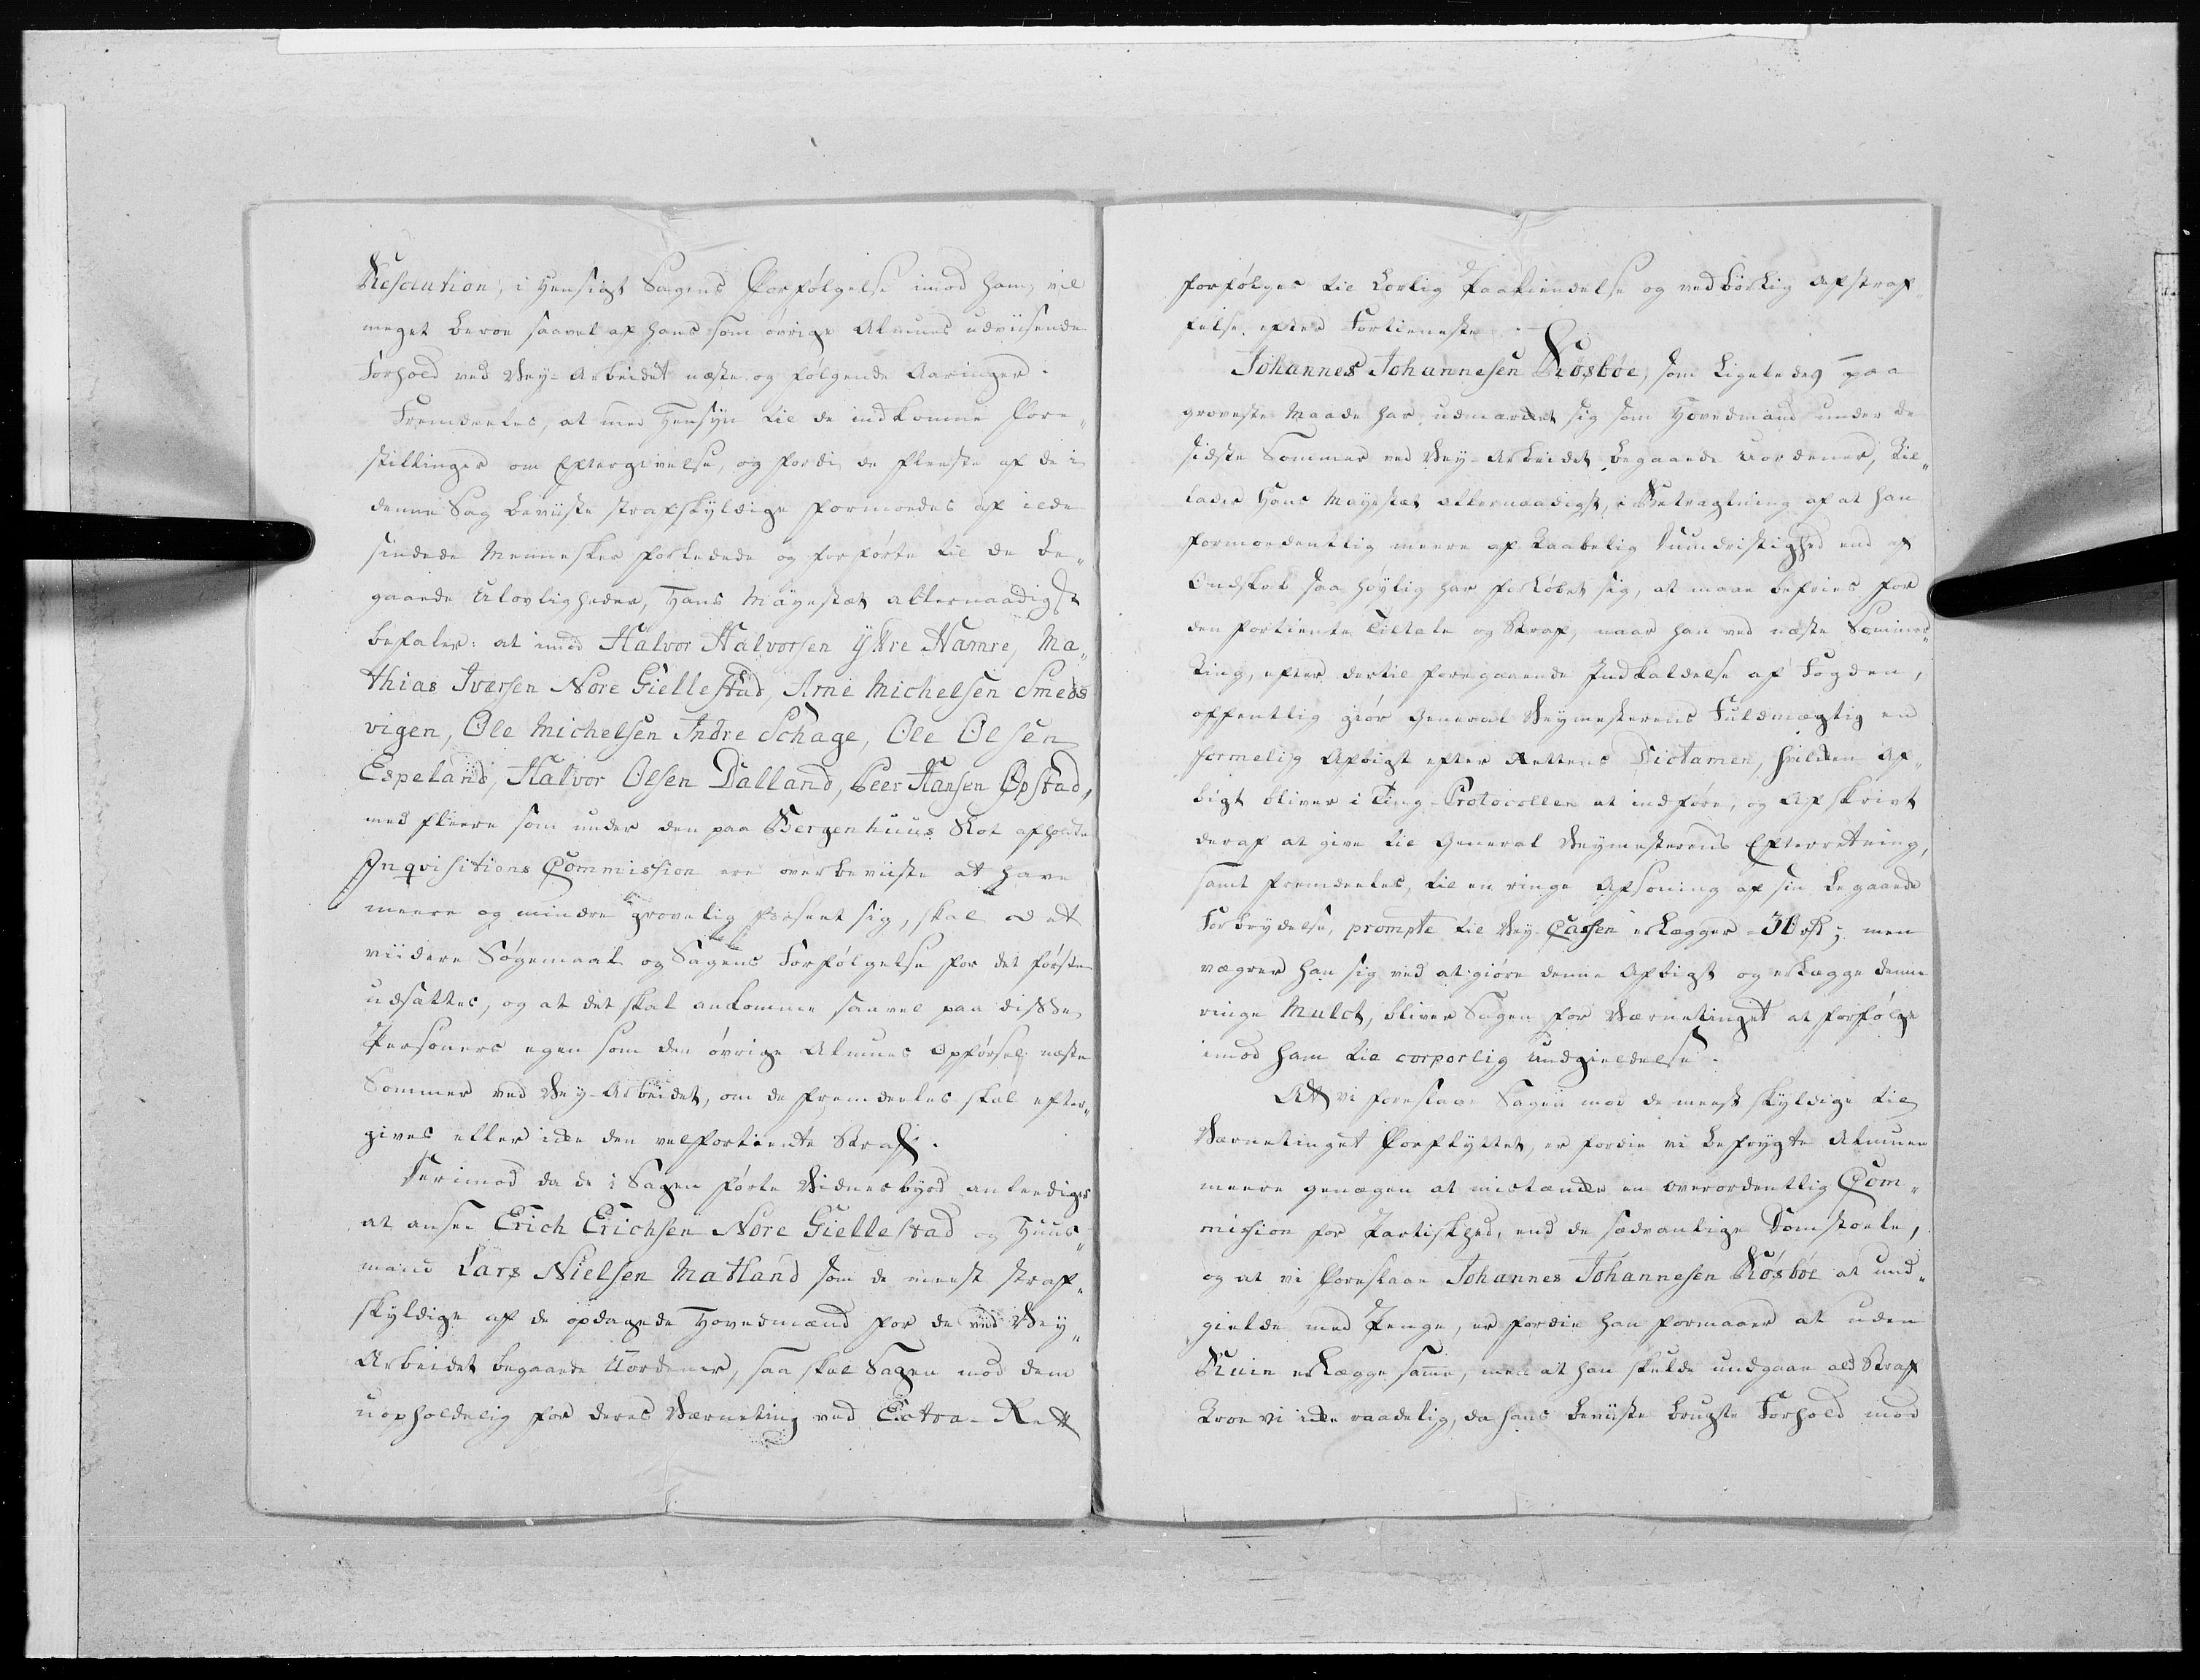 Resolution, i Hensigt Sagens Forfølgelse imod ham, vil
meget beroe saavel af hans som øvrige Almues udviisende
Forhold ved Vey-Arbeidet næste og følgende Aaringer.
Fremdeeles, at med Hensyn til de indkomne Fore„
stillinger om Eftergivelse, og fordi de fleeste af de i
denne Sag beviiste strafskyldige formoedes af ilde
sindede Mennesker forledede og forførte til de be„
gaaede Ulovligheder, Hans Mayestæt allernaadigst
befaler: at imod Halvor Halvorsen ÿtre Hamre, Ma„
thias Iversen Nore Giellestad, Arne Michelsen Smeds
vigen, Ole Michelsen Indre Schage, Ole Olsen
Espeland, Halvor Olsen Dalland, Peer Hansen Øpstad,
med fleere som under den paa Bergenhuus Slot afholdte
Inqvisitions Commission ere overbeviiste at have
meere og mindre grovelig forseet sig, skal det
viidere Søgemaal og Sagens Forfølgelse for det første
udsættes, og at det skal ankomme saavel paa disse
Personers egen som den øvrige Almues Opførsel næste
Sommer ved Vey-Arbeidet, om de fremdeeles skal efter„
gives eller ikke den velfortiente Straf.
Derimod da de i Sagen førte Vidnesbyrd anleediger
at ansee Erich Erichsen Nore Giellestad og Huus„
mand Lars Nielsen Matland som de meest straf„
skyldige af de opdagede Hovedmænd for de ved Vey„
Arbeidet begaaede Uordener, saa skal Sagen mod dem
uopholdelig for deres Værneting ved Extra-Rett
forfølges til lovlig Paakiendelse og vedbørlig Afstraf„
felse efter Fortieneste.
Johannes Johannesen Røsbøe, som ligeledes paa
groveste Maade har udmærket sig som Hovedmand under de
sidste Sommer ved Vey-Arbeidet begaaede Uordener, til„
lader Hans Mayestæt allernaadigst, i Betragtning af at han
formoedentlig meere af taabelig Dumdristighed end af
Ondskab saa høylig har forløbet sig, at maae befries for
den fortiente Tiltale og Straf, naar han ved næste Sommer„
ting, efter dertil foregaaende Indkaldelse af Fogden,
offentlig giør General Veymesterens Fuldmægtig en
formelig Afbigt efter Rettens Dictamen, hvilken Af„
bigt bliver i Ting-Protocollen at indføre, og Afskrivt
deraf at give til General Veymesterens Efterretning,
samt fremdeeles, til en ringe Afsoning af sin begaaede
Forbrydelse, prompte til Vey-Cassen erlægger 30 rd; men
vægrer han sig ved at giøre denne Afbigt og erlægge denne
ringe Mulct, bliver Sagen for Værnetinget at forfølge
imod ham til corporlig Undgieldelse.
At vi foreslaae Sagen mod de meest skyldige til
Værnetinget forflyttet, er fordie vi befrygte Almuen
meere genegen at mistænke en overordentlig Com„
mission for Partiskhed, end de sædvanlige Domstoele,
og at vi foreslaae Johannes Johannesen Røsbøe at und„
gielde med Penge, er fordie han formaaer at uden
Ruin erlægge samme, men at han skulde undgaae ald Straf
troe vi ikke raadelig, da hans beviiste brugte Forhold mod